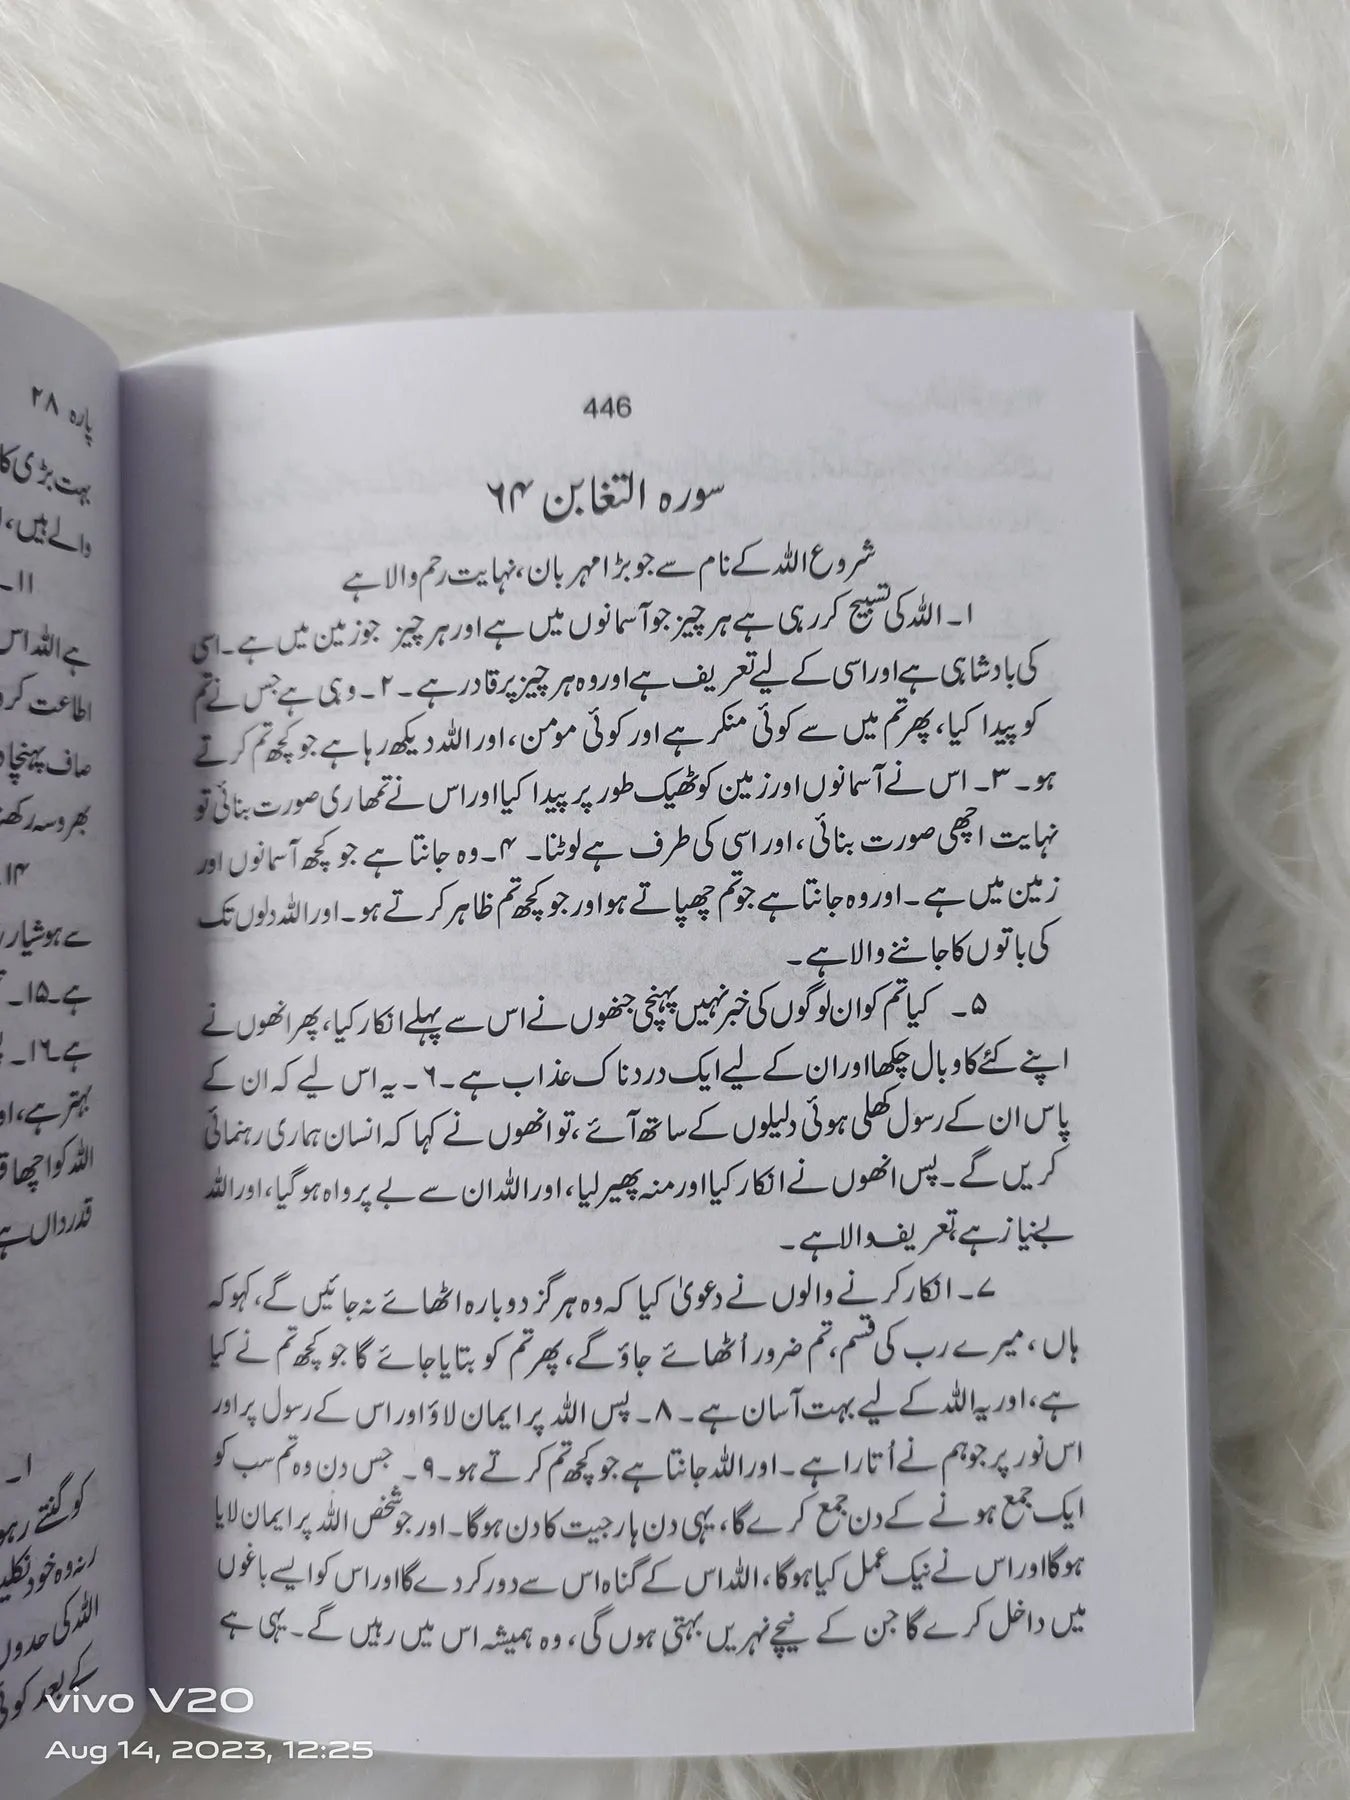 446
سورہ التغابن ۶۴
شروع اللہ کے نام سے جو بڑا مہربان، نہایت رحم والا ہے
۱۔ اللہ کی تسبیح کر رہی ہے ہر چیز جو آسمانوں میں ہے اور ہر چیز جو زمین میں ہے۔ اسی
کی بادشاہی ہے اور اسی کے لیے تعریف ہے اور وہ ہر چیز پر قادر ہے۔ ۲۔ وہی ہے جس نے تم
کو پیدا کیا، پھر تم میں سے کوئی منکر ہے اور کوئی مومن، اور اللہ دیکھ رہا ہے جو کچھ تم کرتے
ہو۔ ۳۔ اس نے آسمانوں اور زمین کو ٹھیک طور پر پیدا کیا اور اس نے تمھاری صورت بنائی تو
نہایت اچھی صورت بنائی، اور اسی کی طرف ہے لوٹنا۔ ۴۔ وہ جانتا ہے جو کچھ آسمانوں اور
زمین میں ہے۔ اور وہ جانتا ہے جو تم چھپاتے ہو اور جو کچھ تم ظاہر کرتے ہو۔ اور اللہ دلوں تک
کی باتوں کا جاننے والا ہے۔
۵۔ کیا تم کو ان لوگوں کی خبر نہیں پہنچی جنھوں نے اس سے پہلے انکار کیا، پھر انھوں نے
اپنے کئے کا وبال چکھا اور ان کے لیے ایک دردناک عذاب ہے۔ ۶۔ یہ اس لیے کہ ان کے
پاس ان کے رسول کھلی ہوئی دلیلوں کے ساتھ آئے، تو انھوں نے کہا کہ انسان ہماری رہنمائی
کریں گے۔ پس انھوں نے انکار کیا اور منہ پھیر لیا، اور اللہ ان سے بے پرواہ ہو گیا، اور اللہ
بے نیاز ہے، تعریف والا ہے۔
۷۔ انکار کرنے والوں نے دعویٰ کیا کہ وہ ہرگز دوبارہ اٹھائے نہ جائیں گے، کہو کہ
ہاں، میرے رب کی قسم، تم ضرور اُٹھائے جاؤ گے، پھر تم کو بتایا جائے گا جو کچھ تم نے کیا
ہے، اور یہ اللہ کے لیے بہت آسان ہے۔ ۸۔ پس اللہ پر ایمان لاؤ اور اس کے رسول پر اور
اس نور پر جو ہم نے اُتارا ہے۔ اور اللہ جانتا ہے جو کچھ تم کرتے ہو۔ ۹۔ جس دن وہ تم سب کو
ایک جمع ہونے کے دن جمع کرے گا، یہی دن ہار جیت کا دن ہوگا۔ اور جو شخص اللہ پر ایمان لایا
ہوگا اور اس نے نیک عمل کیا ہوگا، اللہ اس کے گناہ اس سے دور کر دے گا اور اس کو ایسے باغوں
میں داخل کرے گا جن کے نیچے نہریں بہتی ہوں گی، وہ ہمیشہ اس میں رہیں گے۔ یہی ہے
پارہ ۲۸
بہت بڑی
والے ہیں،
۱۱۔
ہے اللہ اس
اطاعت کرو
صاف پہنچا
بھروسہ
۱۴۔
سے ہوشیار
ہے۔ ۱۵۔
ہے۔ ۱۶۔
بہتر ہے،
اللہ کو اچھا
قدرداں
۱۔
کو گنتے رہو
نہ وہ خود
اللہ کی حدوں
کے بعد کوئی
vivo V20
Aug 14, 2023, 12:25